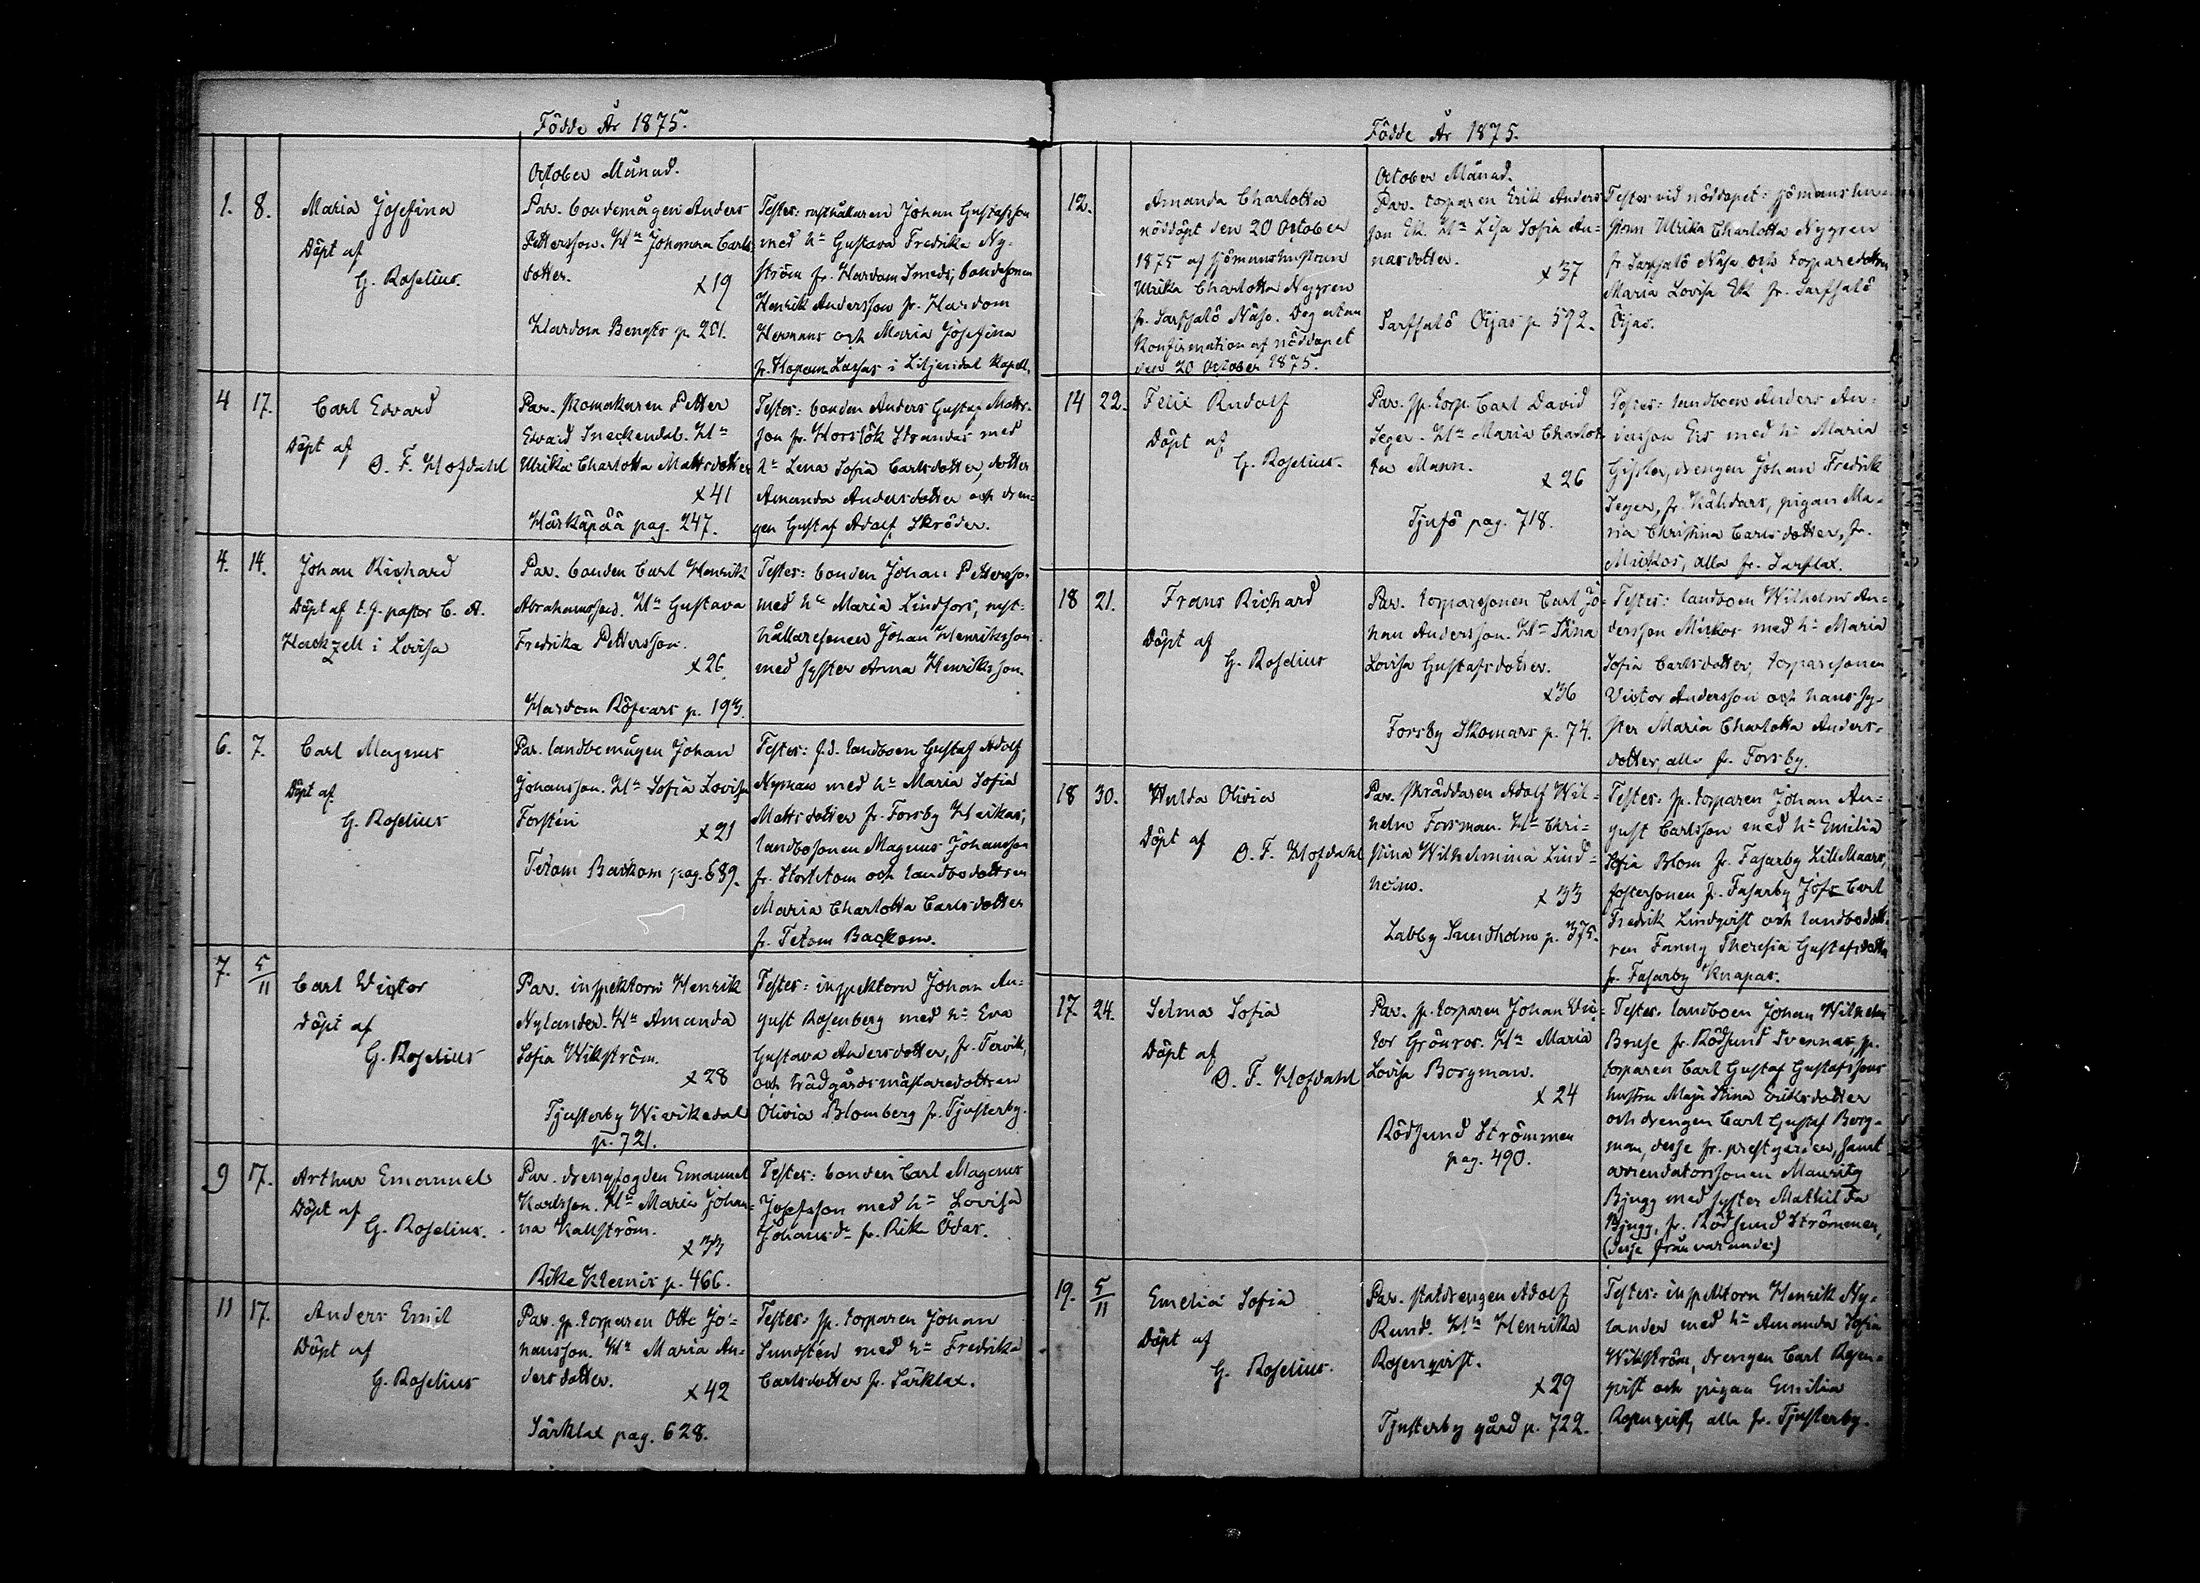 Födde År 1875.
October Månad.
1. 8. Maria Josefina
Döpt af
G. Roselius.
Par. bondemågen Anders
Pettersson. H:n Johanna Carls-
dotter.
x 19
Hardom Bengts p. 201.
Testes: rusthållaren Johan Gustafsson
med h:u Gustava Fredrika Ny-
ström fr. Hardom Smeds, bondesonen
Henrik Andersson fr. Hardom
Hermans och Maria Josefina
fr. Hopom Lassas i Liljendal Kapell.
4 17. Carl Edvard
Döpt af
O. F. Hofdahl
Par. Skomakaren Petter
Edvard Sneckendal. H:n
Ulrika Charlotta Mattsdotter
x 41
Härkäpää pag. 247.
Testes: bonden Anders Gustaf Matts-
son fr. Horslök Strandas med
h:u Lena Sofia Carlsdotter, dotter
Amanda Andersdotter och dren-
gen Gustaf Adolf Skröder.
4. 14. Johan Richard
Döpt af t.f. pastor C. A.
Hackzell i Lovisa
Par. bonden Carl Henrik
Abrahamsson. H:n Gustava
Fredrika Pettersson.
x 26
Hardom Röfvars p. 193.
Testes: bonden Johan Pettersson
med h:u Maria Lindfors, rust-
hållaresonen Johan Henriksson
med syster Anna Henriksson.
6. 7. Carl Magnus
Döpt af
G. Roselius
Par. landbomågen Johan
Johansson. H:n Sofia Lovisa
Forstén
x 21
Tetom Backom pag. 689.
Testes: f.d. landboen Gustaf Adolf
Nyman med h:u Maria Sofia
Mattsdotter fr. Forsby Heikas,
landbosonen Magnus Johansson
fr. Stortetom och landbodottren
Maria Charlotta Carlsdotter
fr. Tetom Backom.
7. 5/11 Carl Victor
Döpt af
G. Roselius
Par. inspektorn Henrik
Nylander. H:n Amanda
Sofia Wikström.
x 28
Tjusterby Wivikedal
p. 721.
Testes: inspektorn Johan Au-
gust Rosenberg med h:u Eva
Gustava Andersdotter, fr. Tervik,
och trädgårdsmästaredottren
Olivia Blomberg fr. Tjusterby.
9 17. Arthur Emanuel
Döpt af
G. Roselius.
Par. drengfogden Emanuel
Karlsson. H:n Maria Johan-
na Kallström.
x 33
Rike Klemis p. 466.
Testes: bonden Carl Magnus
Josefsson med h:u Lovisa
Johansd:r fr. Rike Ödas.
11 17. Anders Emil
Döpt af
G. Roselius
Par. sp. torparen Otto Jo-
hansson. H:n Maria An-
dersdotter.
x 42
Särklax pag. 628.
Testes: sp. torparen Johan
Sundstén med h:u Fredrika
Carlsdotter fr. Särklax.
Födde År 1875.
October Månad.
12. Amanda Charlotta
nöddöpt den 20 October
1875 af sjömanshustrun
Ulrika Charlotta Nygren
fr. Sarfsalö Näse. Dog utan
Konfirmation af nöddopet
den 20 October 1875.
Par. torparen Erik Anders-
son Ek. H:n Lisa Sofia An-
narsdotter.
x 37
Sarfsalö Öijas p. 572.
Testes vid nöddopet: sjömanshu-
strun Ulrika Charlotta Nygren
fr. Sarfsalö Näse och torparedottren
Maria Lovisa Ek fr. Sarfsalö
Öijas.
14 22. Felix Rudolf
Döpt af
G. Roselius.
Par. sp. torp. Carl David
Seger. H:n Maria Charlot-
ta Mann.
x 26
Tjufö pag. 718.
Testes: landboen Anders An-
dersson Ers med h:u Maria
Gissler, drengen Johan Fredrik
Seger, fr. Kähldars, pigan Ma-
ria Christina Carlsdotter, fr.
Mickos, alla fr. Sarflax.
18 21. Frans Richard
Döpt af
G. Roselius
Par. torparesonen Carl Jo-
han Andersson. H:n Stina
Lovisa Gustafsdotter.
x 36
Forsby Skomars p. 74.
Testes: landboen Wilhelm An-
dersson Mickos med h:u Maria
Sofia Carlsdotter, torparesonen
Victor Andersson och hans sy-
ster Maria Charlotta Anders-
dotter, alla fr. Forsby.
18 30. Hulda Olivia
Döpt af
O. F. Hofdahl
Par. Skräddaren Adolf Wil-
helm Forsman. H:n Chri-
stina Wilhelmina Lind-
holm.
x 33
Labby Sundholm p. 375.
Testes: sp. torparen Johan Au-
gust Carlsson med h:u Emilia
Sofia Blom fr. Fasarby Lill Maars,
fostersonen fr. Fasarby Jofs Carl
Fredrik Lindqvist och landbodott-
ren Fanny Theresia Gustafsdotter
fr. Fasarby Knapas.
17. 24. Selma Sofia
Döpt af
O. F. Hofdahl
Par. sp. torparen Johan Vic-
tor Grönros. H:n Maria
Lovisa Borgman.
x 24
Rödsund Strömmen
pag. 490.
Testes: landboen Johan Wilhelm
Bruse fr. Rödsund Svennas, sp.
torparen Carl Gustaf Gustafssons
hustru Maja Stina Eriksdotter
och drengen Carl Gustaf Borg-
man, desse fr. prestgården, samt
arrendatorssonen Mauritz
Bjugg med syster Mathilda
Bjugg, fr. Rödsund Strömmen,
(desse frånvarande)
19. 5/11 Emelia Sofia
Döpt af
G. Roselius.
Par. statdrengen Adolf
Rund. H:n Henrika
Rosenqvist.
x 29
Tjusterby gård p. 722.
Testes: inspektorn Henrik Ny-
lander med h:u Amanda Sofia
Wikström, drengen Carl Rosen-
qvist och pigan Emilia
Rosenqvist, alla fr. Tjusterby.